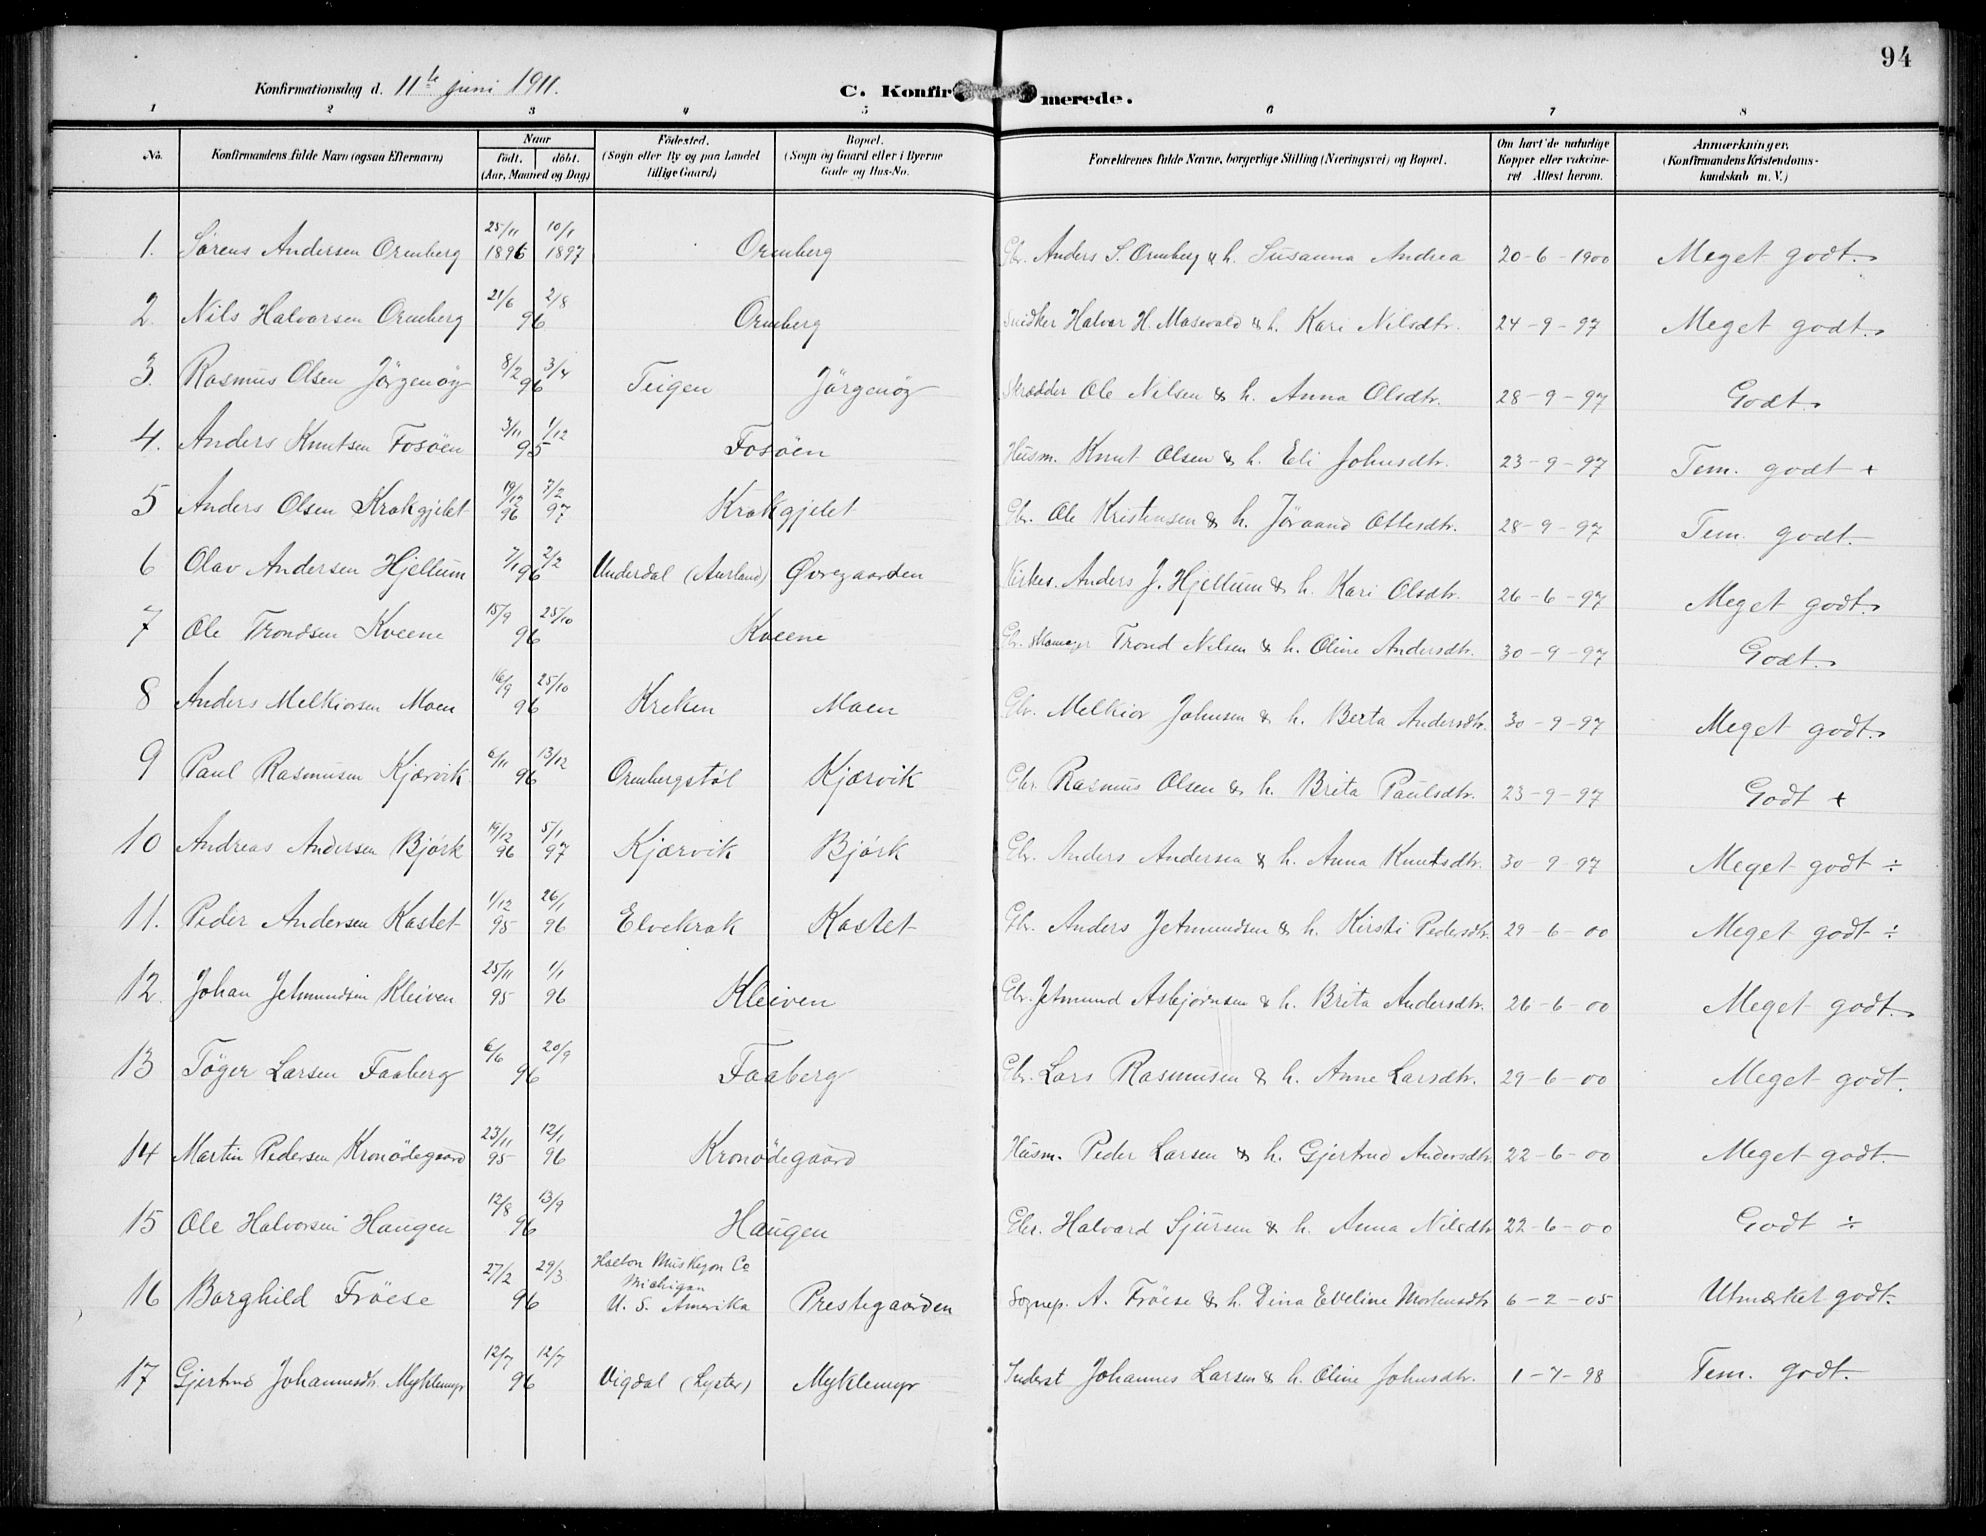 94
Konfirmationsdag d. 11te juni 1911.
C. Konfirmerede.
1 2 3 4 5 6 7 8
No. Konfirmandens fulde Navn (ogsaa Efternavn) Naar födt. döbt. (Aar, Maaned og Dag) Födested. (Sogn eller By og paa Landet tillige Gaard) Bopæl. (Sogn og Gaard eller i Byerne Gade og Hus-No. Forældrenes fulde Navne, borgerlige Stilling (Næringsvei) og Bopæl. Om havt de naturlige Kopper eller vakcineret Attest herom. Anmærkninger. (Konfirmandens Kristendomskundskab m. V.)
1. Sørens Andersen Ormberg 25/11 1896 10/1 1897 Ormberg Gbr. Anders S. Ormberg & h. Susanna Andrea 20-6-1900 Meget godt.
2. Nils Halvorsen Ormberg 21/6 2/8 96 Ormberg Snidker Halvor H. Masevold & h. Kari Nilsdtr. 24-9-97 Meget godt.
3. Rasmus Olsen Jörgenöy 8/2 3/4 96 Teigen Jörgenöy Skrædder Ole Nilsen & h. Anna Olsdtr. 28-9-97 Godt.
4. Anders Knutsen Fosöen 3/11 1/12 95 Fosöen Husm. Knut Olsen & h. Eli Johnsdtr. 23-9-97 Tem. godt +
5 Anders Olsen Krokgjelet 19/12 96 7/2 97 Krokgjelet Gbr. Ole Kristensen & h. Jöraand Ottesdtr. 28-9-97 Tem. godt.
6 Olav Andersen Hjellum 7/1 2/2 96 Underdal (Aurland) Øvregaarden Kirkes. Anders J. Hjellum & h. Kari Olsdtr. 26-6-97 Meget godt.
7 Ole Trondsen Kveene 15/9 25/10 96 Kveene Gbr. Skomager Trond Nilsen & h. Oline Andersdtr. 30-9-97 Godt.
8 Anders Melkiorsen Moen 16/9 25/10 96 Kreken Moen Gbr. Melkior Johnsen & h. Berta Andersdtr. 30-9-97 Meget godt.
9 Paul Rasmusen Kjærvik 6/11 13/12 96 Ormbergstöl Kjærvik Gbr. Rasmus Olsen & h. Brita Paulsdtr. 23-9-97 Godt +
10 Andreas Andersen Bjørk 19/12 96 5/1 97 Kjærvik Bjørk Gbr. Anders Andersen & h. Anna Knutsdtr. 30-9-97 Meget godt ÷
11. Peder Andersen Kastet 1/12 95 26/1 96 Elvekrok Kastet Gbr. Anders Jetmundsen & h. Kirsti Pedersdtr. 29-6-00 Meget godt ÷
12. Johan Jetmundsen Kleiven 25/11 95 1/1 96 Kleiven Gbr. Jetmund Asbjørnsen & h. Brita Andersdtr. 26-6-00 Meget godt.
13 Töger Larsen Faaberg 6/6 20/9 96 Faaberg Gbr. Lars Rasmusen & h. Anne Larsdtr. 29-6-00 Meget godt.
14 Martin Pedersen Kronödegaard 23/11 95 12/1 96 Kronödegaard Husm. Peder Larsen & h. Gjertrud Andersdtr. 22-6-00 Meget godt.
15 Ole Halvorsen Haugen 12/8 13/9 96 Haugen Gbr. Halvard Sjursen & h. Anna Nilsdtr. 22-6-00 Godt ÷
16 Borghild Fröese 27/2 29/3 96 Holton Muskegon Co Michigan U. S. Amerika Prestegaarden Sognep. A. Fröese & h. Dina Eveline Mortensdtr. 6-2-05 Utmærket godt.
17 Gjertrud Johannesdtr. Myklemyr 12/7 12/7 96 Vigdal (Lyster) Myklemyr Inderst Johannes Larsen & h. Oline Johnsdtr. 1-7-98 Tem. godt.